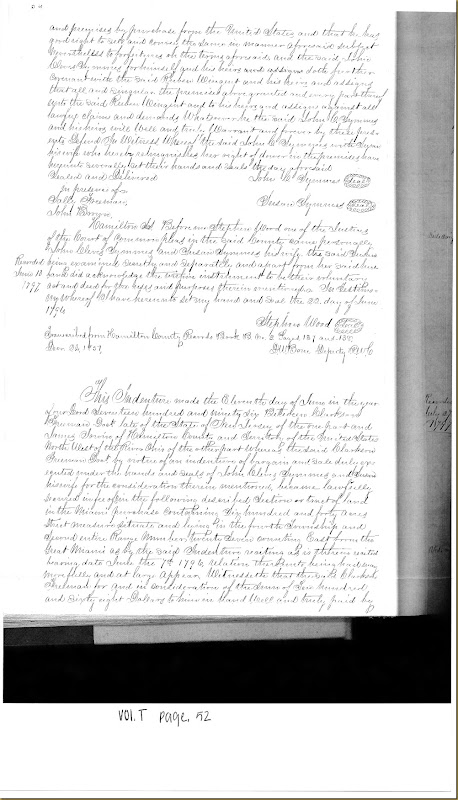 and premises by purchase from the United States and that he has
good right to sell and convey the same in manner aforesaid subject
nevertheless to forfeiture on the terms aforesaid and the said John
Cleves Symmes for himself and his heirs and assigns doth further
covenant with the said Reuben and his heirs and assigns
that all and singular the premises above granted and every part thereof
unto the said Reuben and to his heirs and assigns against all
lawful claims and demands Whatsoever he the said John C Symmes
and his heirs will Well and truly Warrant and forever by these pres
ents Defend In Witness Whereof the said John C Symmes and Susan
his wife who hereby relinquishes her right of dower in the premises have
hereunto severally set their hands and seals the day aforesaid
Sealed and Delivered John C Symmes Seal
in presence of
Susan Symmes Seal
Freeman,
John Brown,
Hamilton Before Stephen Wood one of the Justices
of the Court of Common pleas in the said County came personally
John Cleves Symmes and Susan Symmes his wife the said Susan
being examined Secretly and Separately and apart from her said hus
band did acknowledge the within instrument to be their voluntary
act and deed for the uses and purposes therein mentioned In Testimo
ny Whereof I have hereunto set my hand and Seal the 22 day of June
1796
Recorded
June 10
1797
Stephen Wood Seal
Transcribed from Hamilton County Records Book B No 2 Pages 131 and 132
Deputy R H C
This Indenture made the Eleventh day of June in the year
of our Lord Seventeen hundred and ninety Six Between Clarkson
Freeman late of the State of New Jersey of the one part and
James of Hamilton County and Territory of the United States
North West of the River Ohio of the other part Whereas the said Clarkson
Freeman by virtue of an indenture of bargain and Sale duly exe
cuted under the hands and Seals of John Cleves Symmes and Susan
his wife for the consideration therein mentioned became lawfully
seized in fee of in the following described Section or tract of land
in the Miami purchase Containing Six hundred and forty Acres
Strict measure situate and lying in the fourth Township and
Second entire Range Number twenty Seven counting East from the
Great Miami as by the said Indenture reciting as is therein recited
bearing date June the 7th 1796, relation thereunto being had
more fully and at large Appear, Witnesseth that the said Clarkson
Freeman for and in consideration of the Sum of hundred
and sixty eight Dollars to him in hand Well and truly paid by
VOl. T page. 52